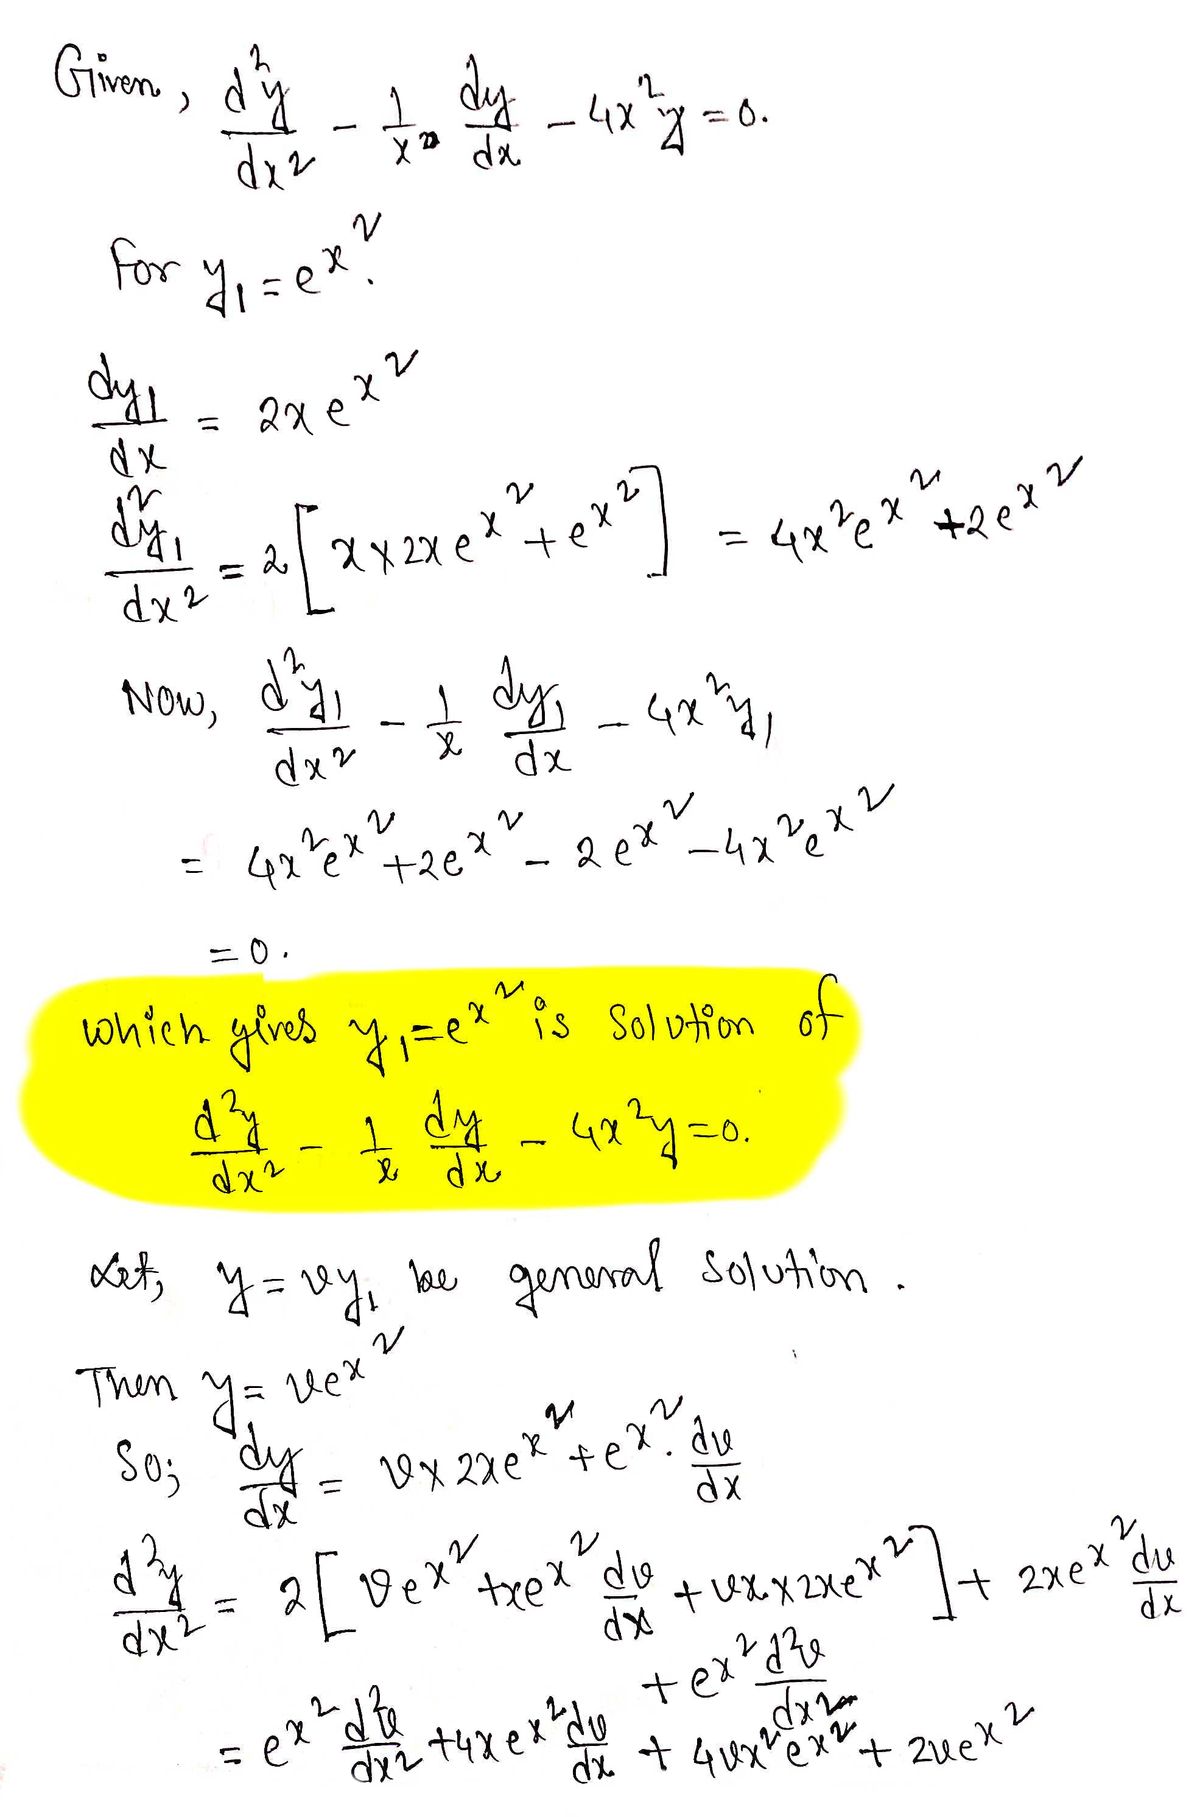 Given, d²y/dx² - 1/x dy/dx - 4x²y = 0.
For y₁ = e^x².
dy₁/dx = 2x e^x²
d²y₁/dx² = 2[x × 2x e^x² + e^x²] = 4x² e^x² + 2e^x²
Now, d²y₁/dx² - 1/x dy₁/dx - 4x²y₁
= 4x² e^x² + 2e^x² - 2e^x² - 4x² e^x²
= 0.
which gives y₁ = e^x² is solution of
d²y/dx² - 1/x dy/dx - 4x²y = 0.
Let, y = vy₁ be general solution.
Then y = ve^x²
So; dy/dx = v × 2x e^x² + e^x². dv/dx
d²y/dx² = 2[ve^x² + xe^x² dv/dx + vx × 2xe^x²] + 2xe^x² dv/dx
+ e^x² d²v/dx²
= e^x² d²v/dx² + 4x e^x² dv/dx + 4vx² e^x² + 2ve^x²